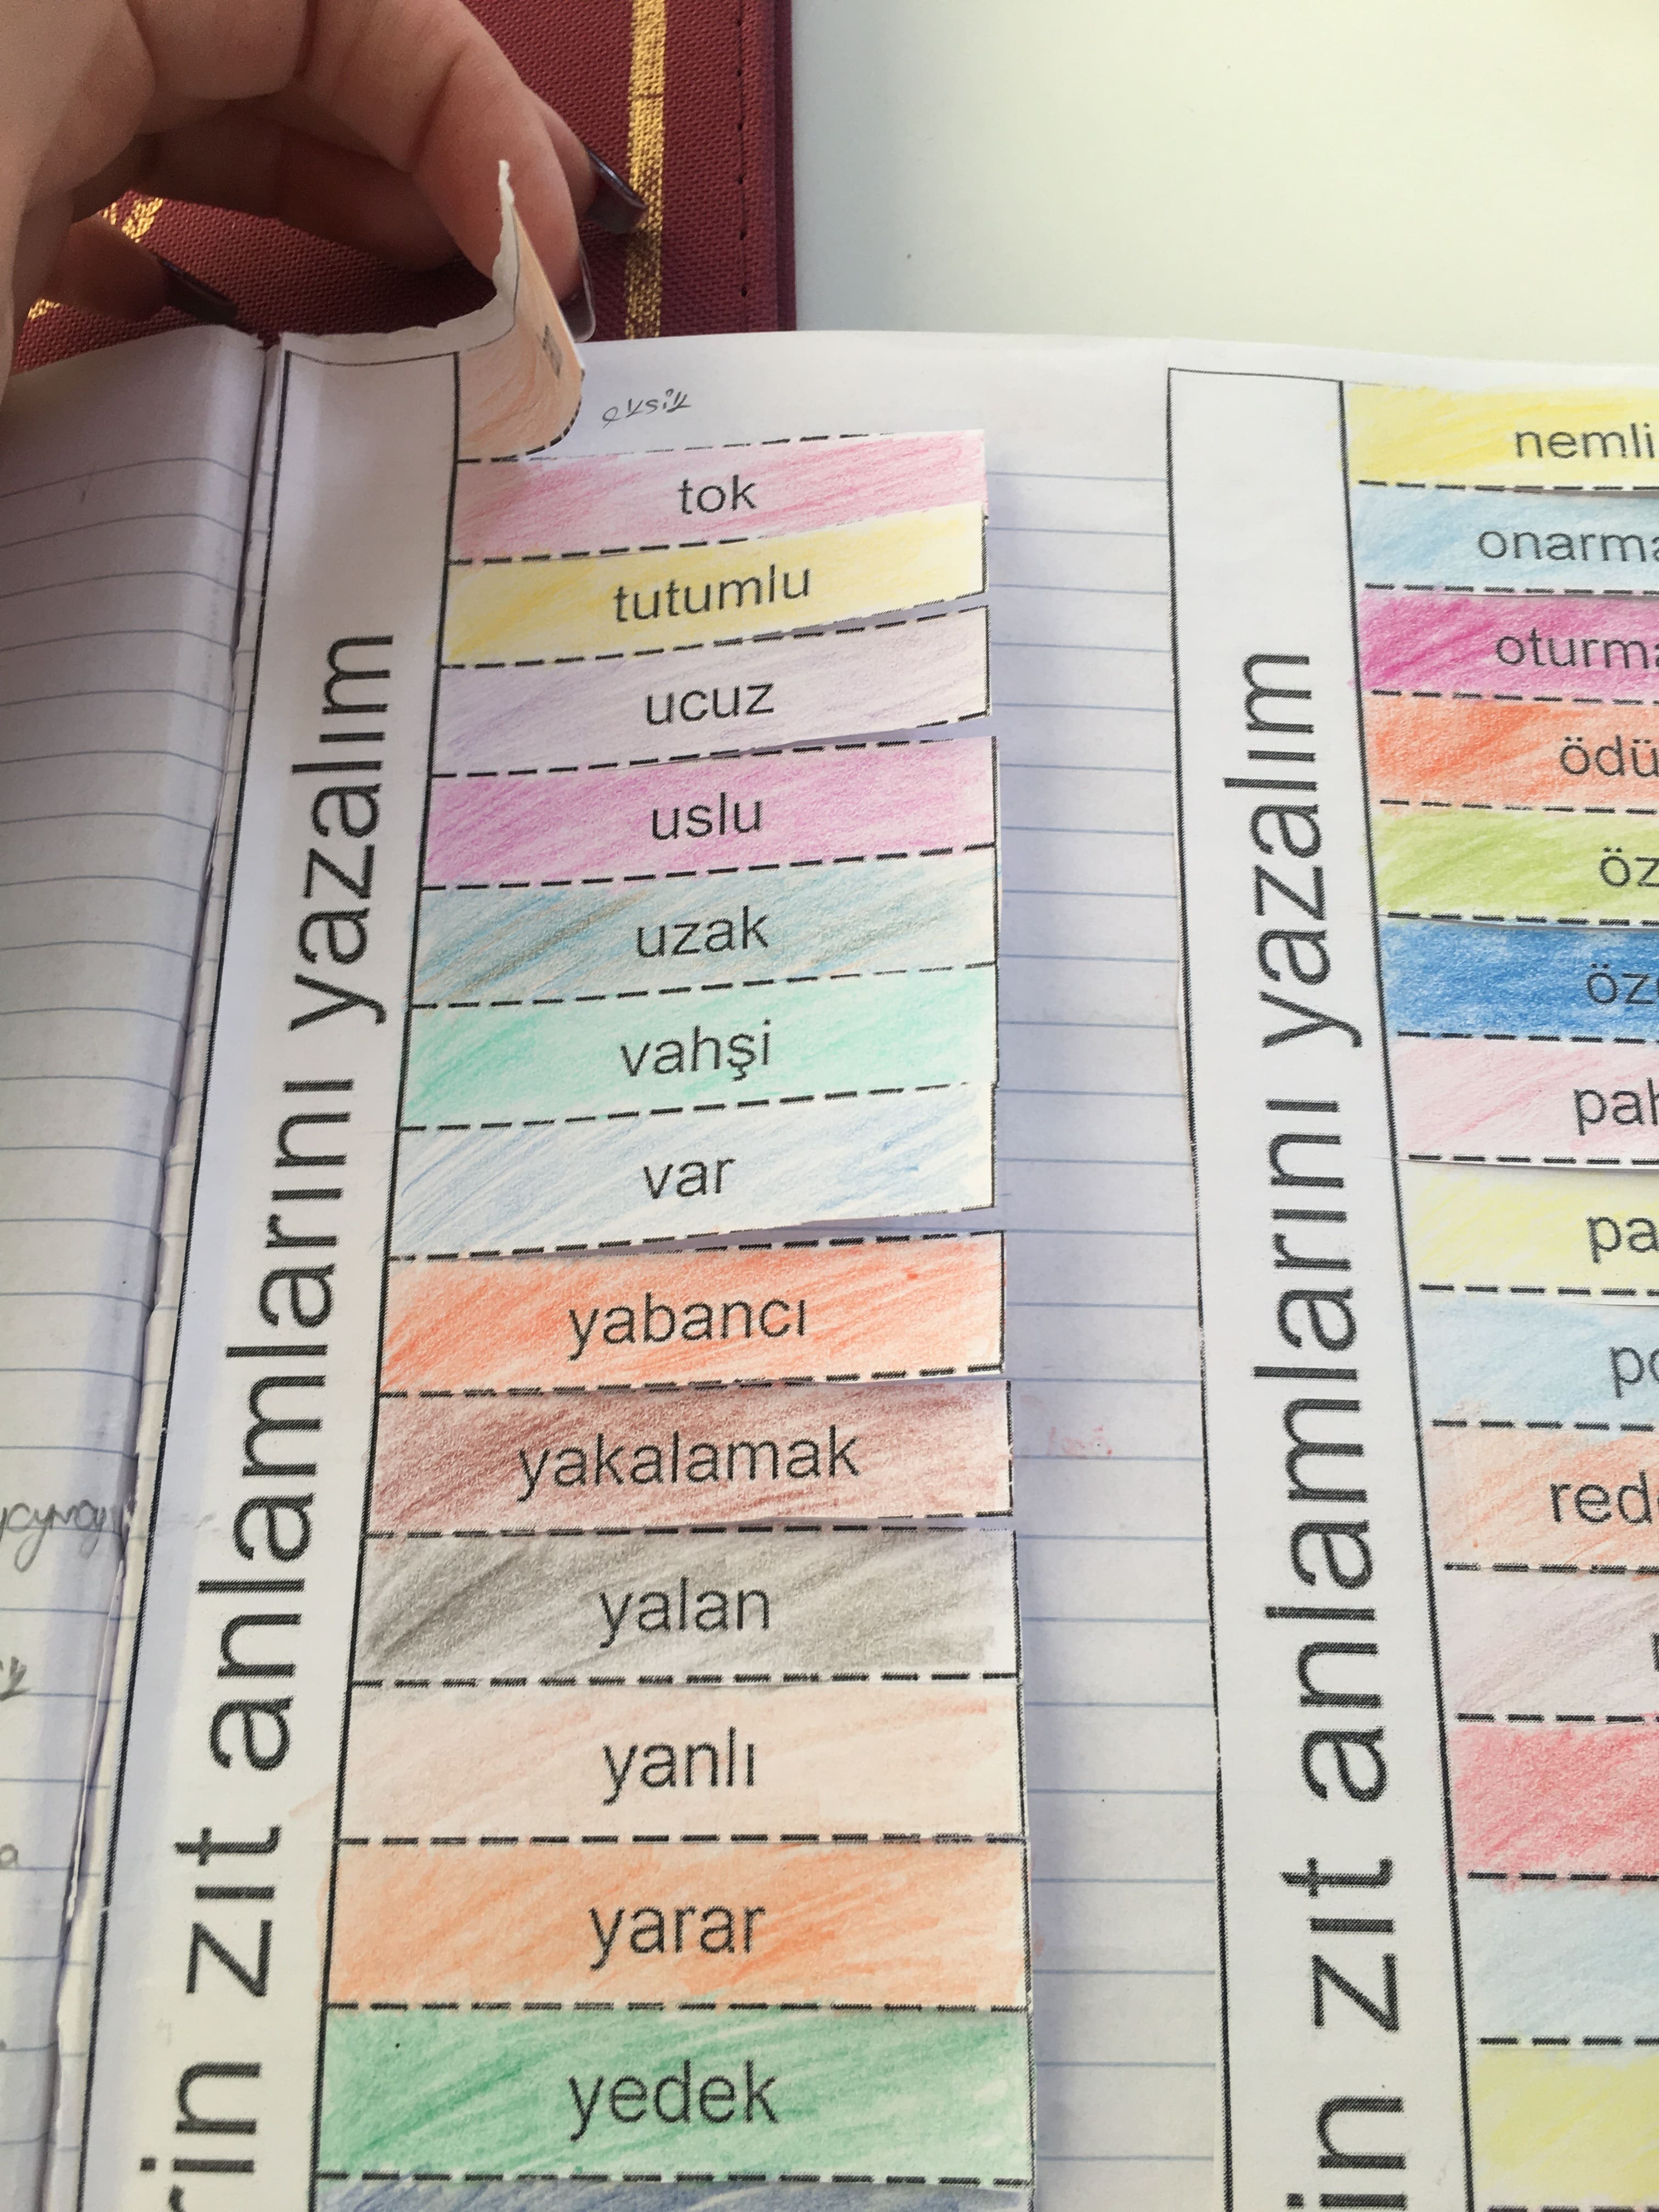 eksik
tok
tutumlu
ucuz
uslu
uzak
vahşi
var
yabancı
yakalamak
yalan
yanlı
yarar
yedek
rin zıt anlamlarını yazalım
in zıt anlamlarını yazalım
nemli
onarma
oturma
ödü
öz
öz
pah
pa
red